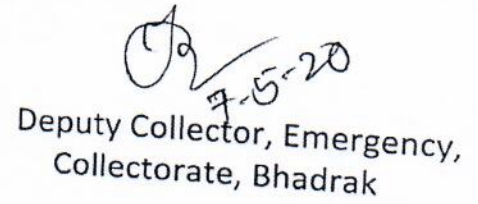 7-5-20
Deputy Collector, Emergency,
Collectorate, Bhadrak